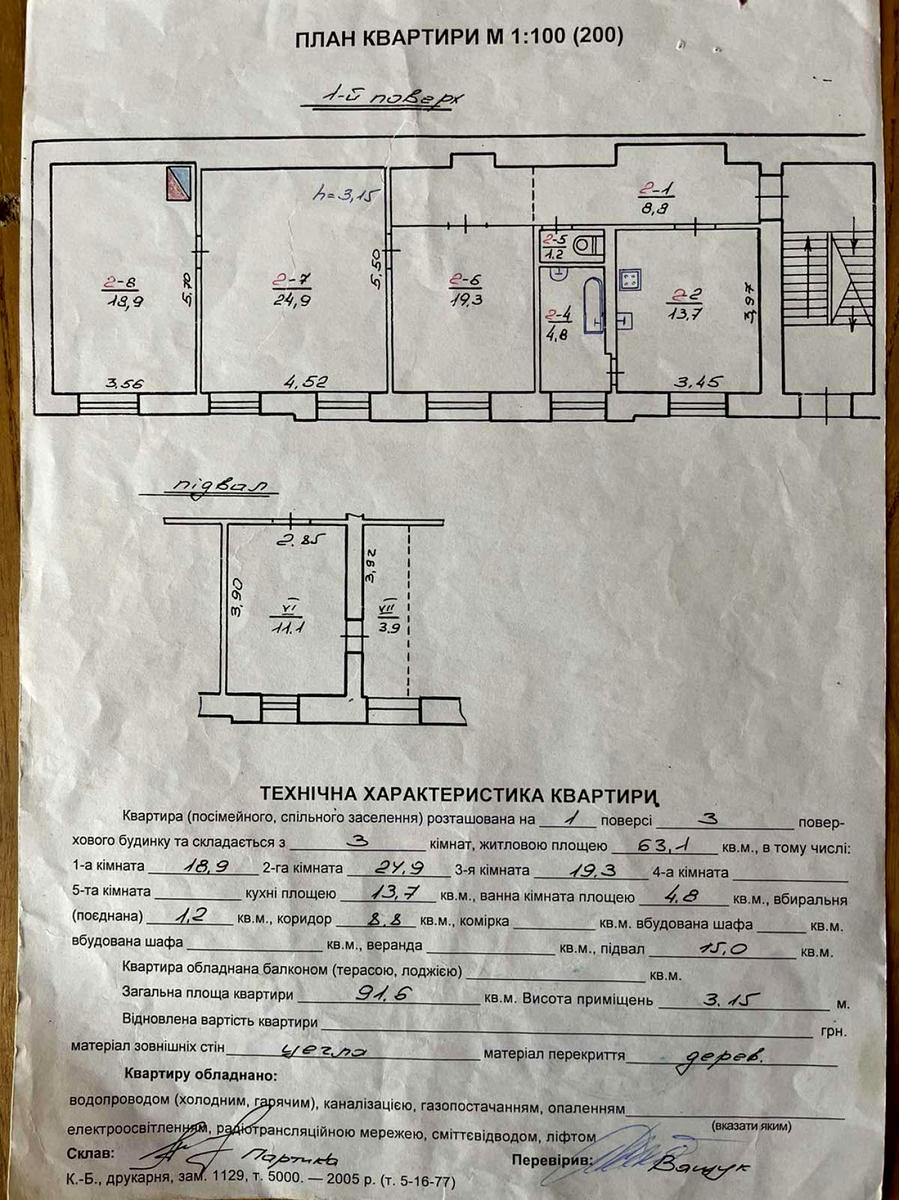 ПЛАН КВАРТИРИ М 1:100 (200)
1-й поверх
h=3,15
2-1
8,8
2-5
1.2
2-8
18,9
5,70
2-7
24,9
5,50
2-6
19,3
2-4
4,8
2-2
13,7
3,97
3,56
4,52
3,45
підвал
2.85
3,90
3,92
VI
11.1
VII
3.9
ТЕХНІЧНА ХАРАКТЕРИСТИКА КВАРТИРИ
Квартира (посімейного, спільного заселення) розташована на 1 поверсі 3 повер-
хового будинку та складається з 3 кімнат, житловою площею 63,1 кв.м., в тому числі:
1-а кімната 18,9 2-га кімната 24,9 3-я кімната 19.3 4-а кімната
5-та кімната кухні площею 13,7 кв.м., ванна кімната площею 4.8 кв.м., вбиральня
(поєднана) 1,2 кв.м., коридор 8.8 кв.м., комірка кв.м. вбудована шафа кв.м.
вбудована шафа кв.м., веранда кв.м., підвал 15,0 кв.м.
Квартира обладнана балконом (терасою, лоджією) кв.м.
Загальна площа квартири 91,6 кв.м. Висота приміщень 3.15 м.
Відновлена вартість квартири грн.
матеріал зовнішніх стін цегла матеріал перекриття дерев.
Квартиру обладнано:
водопроводом (холодним, гарячим), каналізацією, газопостачанням, опаленням
(вказати яким)
електроосвітленням, радіотрансляційною мережею, сміттєвідводом, ліфтом
Склав: Партика Перевірив: Вящук
К.-Б., друкарня, зам. 1129, т. 5000. — 2005 р. (т. 5-16-77)